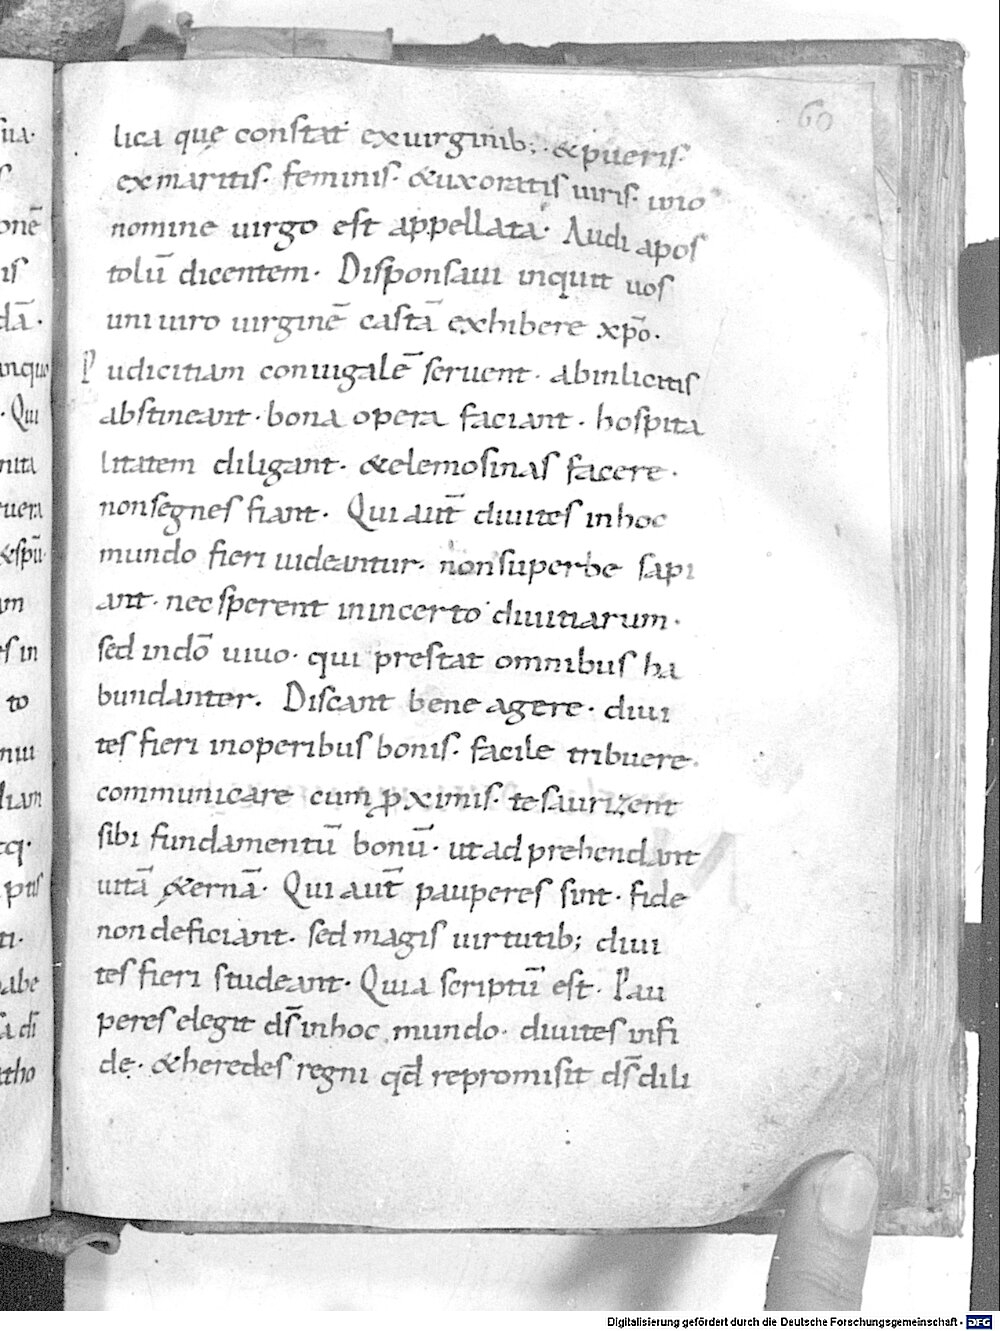 60
lica que constat ex uirginib; & pueris
ex maritis. feminis. & uxoratis uiris. uno
nomine uirgo est appellata. Audi apos
tolū dicentem. Disponsaui inquit uos
uni uiro uirginē castā exhibere xp̄o.
Pudicitiam coniugalē seruent. ab inlicitis
abstineant. bona opera faciant. hospita
litatem diligant. & elemosinas facere.
non segnes fiant. Qui aut̄ diuites in hoc
mundo fieri uideantur. non superbe sapi
ant. nec sperent in incerto diuitiarum.
sed in dō uiuo. qui prestat omnibus ha
bundanter. Discant bene agere. diui
tes fieri in operibus bonis. facile tribuere.
communicare cum pximis. tesaurizent
sibi fundamentū bonū. ut adprehendant
uitā &ernā. Qui aut̄ pauperes sint. fide
non deficiant. sed magis uirtutib; diui
tes fieri studeant. Quia scriptū est. Pau
peres elegit ds̄ in hoc mundo. diuites in fi
de. & heredes regni qd̄ repromisit ds̄ dili
Digitalisierung gefördert durch die Deutsche Forschungsgemeinschaft - DFG